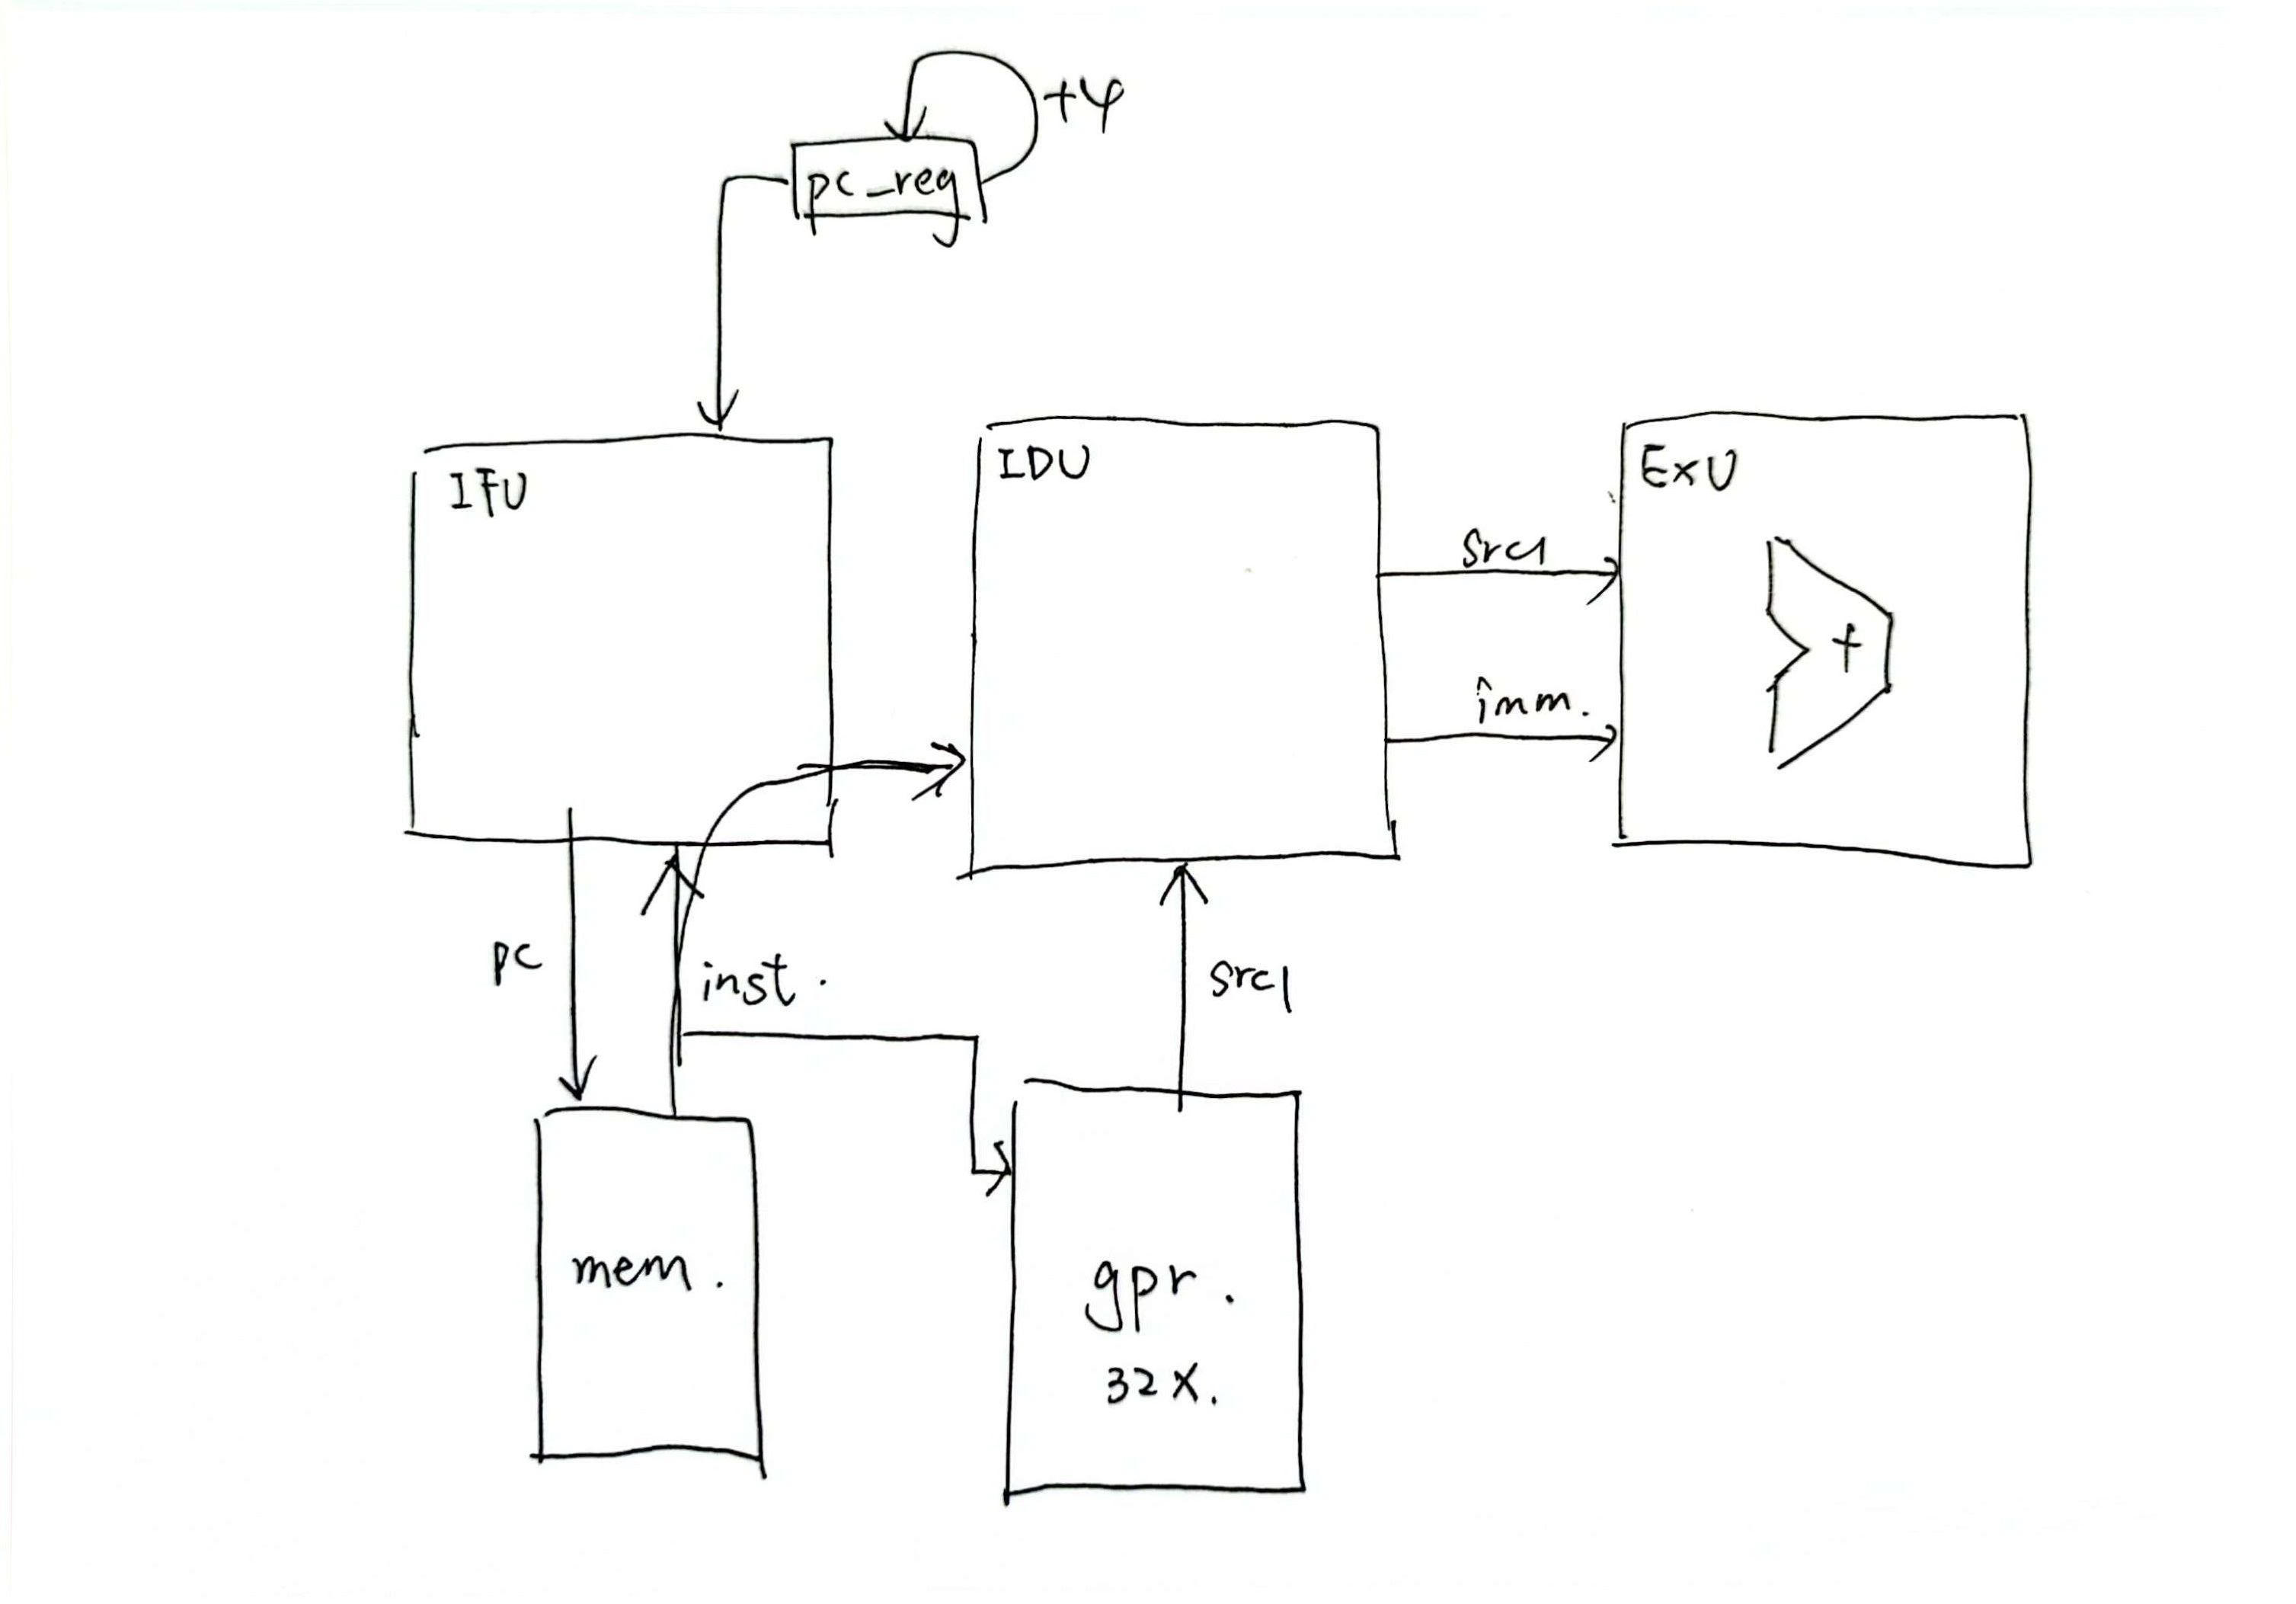 +4
pc_reg
IFU
IDU
EXU
src1
+
imm.
pc
inst.
src1
mem.
gpr.
32X.